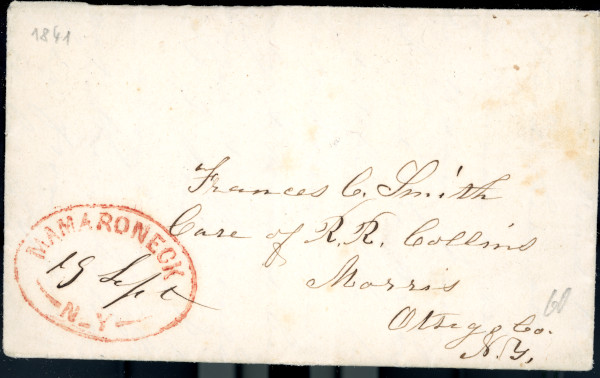 1841
Frances C. Smith
Care of R. R. Collins
Morris
Otsego Co.
N.Y.
MAMARONECK
19 Sept
N-Y
60